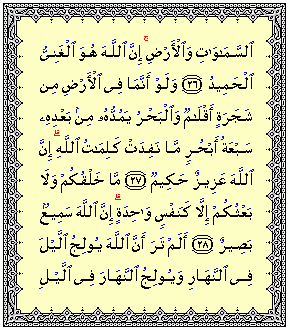 ٱلسَّمَٰوَٰتِ وَٱلْأَرْضِ ۚ إِنَّ ٱللَّهَ هُوَ ٱلْغَنِىُّ
ٱلْحَمِيدُ ﴿٢٦﴾ وَلَوْ أَنَّمَا فِى ٱلْأَرْضِ مِن
شَجَرَةٍ أَقْلَٰمٌ وَٱلْبَحْرُ يَمُدُّهُۥ مِنۢ بَعْدِهِۦ
سَبْعَةُ أَبْحُرٍ مَّا نَفِدَتْ كَلِمَٰتُ ٱللَّهِ ۗ إِنَّ
ٱللَّهَ عَزِيزٌ حَكِيمٌ ﴿٢٧﴾ مَّا خَلْقُكُمْ وَلَا
بَعْثُكُمْ إِلَّا كَنَفْسٍ وَٰحِدَةٍ ۗ إِنَّ ٱللَّهَ سَمِيعٌۢ
بَصِيرٌ ﴿٢٨﴾ أَلَمْ تَرَ أَنَّ ٱللَّهَ يُولِجُ ٱلَّيْلَ
فِى ٱلنَّهَارِ وَيُولِجُ ٱلنَّهَارَ فِى ٱلَّيْلِ